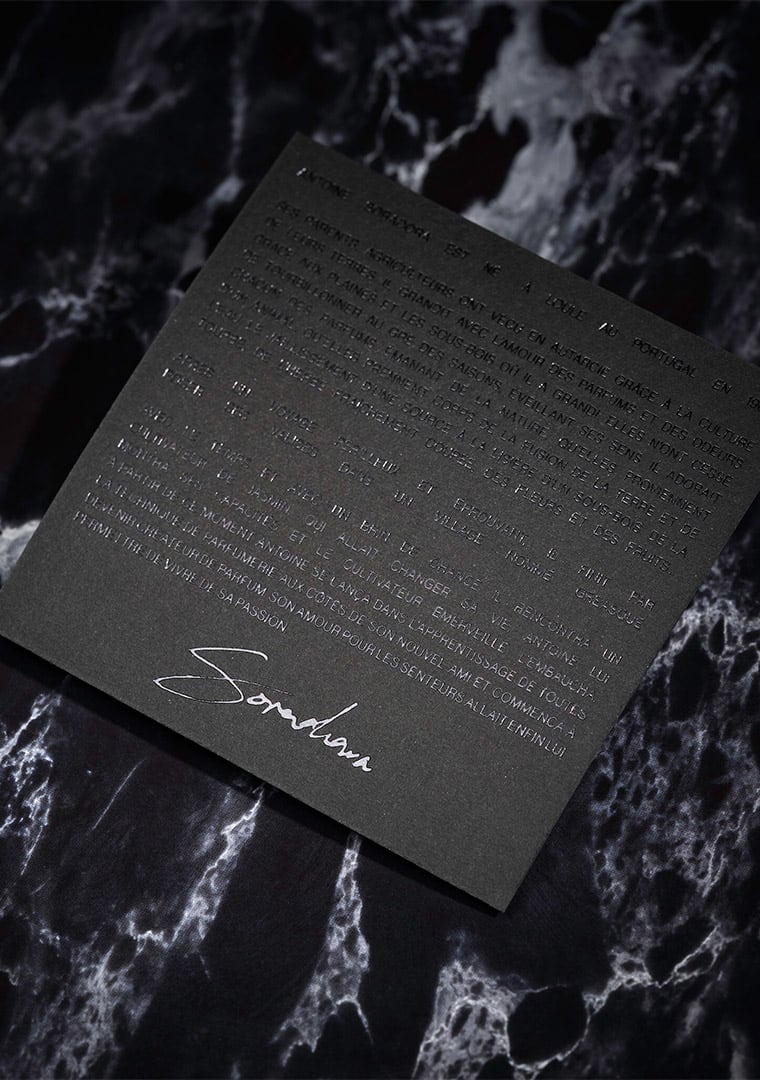 ANTOINE SORADORA EST NÉ À LOULÉ AU PORTUGAL EN
SES PARENTS AGRICULTEURS ONT VÉCU EN AUTARCIE GRÂCE À LA CULTURE
DE LEURS TERRES. IL GRANDIT AVEC L'AMOUR DES PARFUMS ET DES ODEURS
GRÂCE AUX PLAINES ET LES SOUS-BOIS OÙ IL A GRANDI. ELLES N'ONT CESSÉ
DE TOURBILLONNER AU GRÉ DES SAISONS, ÉVEILLANT SES SENS. IL ADORAIT
CHACUN DES PARFUMS ÉMANANT DE LA NATURE, QU'ELLES PROVIENNENT
D'UN ANIMAL, QU'ELLES PRENNENT CORPS DE LA FUSION DE LA TERRE ET DE
L'EAU, LE JAILLISSEMENT D'UNE SOURCE À LA LISIÈRE D'UN SOUS-BOIS, DE LA
TOURBE, DE L'HERBE FRAÎCHEMENT COUPÉE, DES FLEURS ET DES FRUITS.
APRÈS UN VOYAGE PÉRILLEUX ET ÉPROUVANT, IL FINIT PAR
POSER SES VALISES DANS UN VILLAGE NOMMÉ GRÉASQUE
AVEC LE TEMPS ET AVEC UN BRIN DE CHANCE IL RENCONTRA UN
CULTIVATEUR DE JASMIN, QUI ALLAIT CHANGER SA VIE. ANTOINE LUI
MONTRA SES CAPACITÉS ET LE CULTIVATEUR ÉMERVEILLÉ L'EMBAUCHA
À PARTIR DE CE MOMENT ANTOINE SE LANÇA DANS L'APPRENTISSAGE DE TOUTES
LA TECHNIQUE DE PARFUMERIE AUX CÔTÉS DE SON NOUVEL AMI ET COMMENÇA À
DEVENIR CRÉATEUR DE PARFUM. SON AMOUR POUR LES SENTEURS ALLAIT ENFIN LUI
PERMETTRE DE VIVRE DE SA PASSION
Soradora